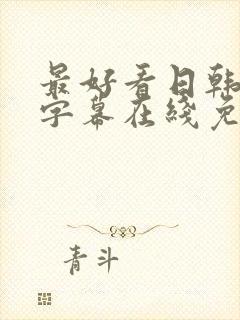 最好看日韩
字幕在线免
青斗